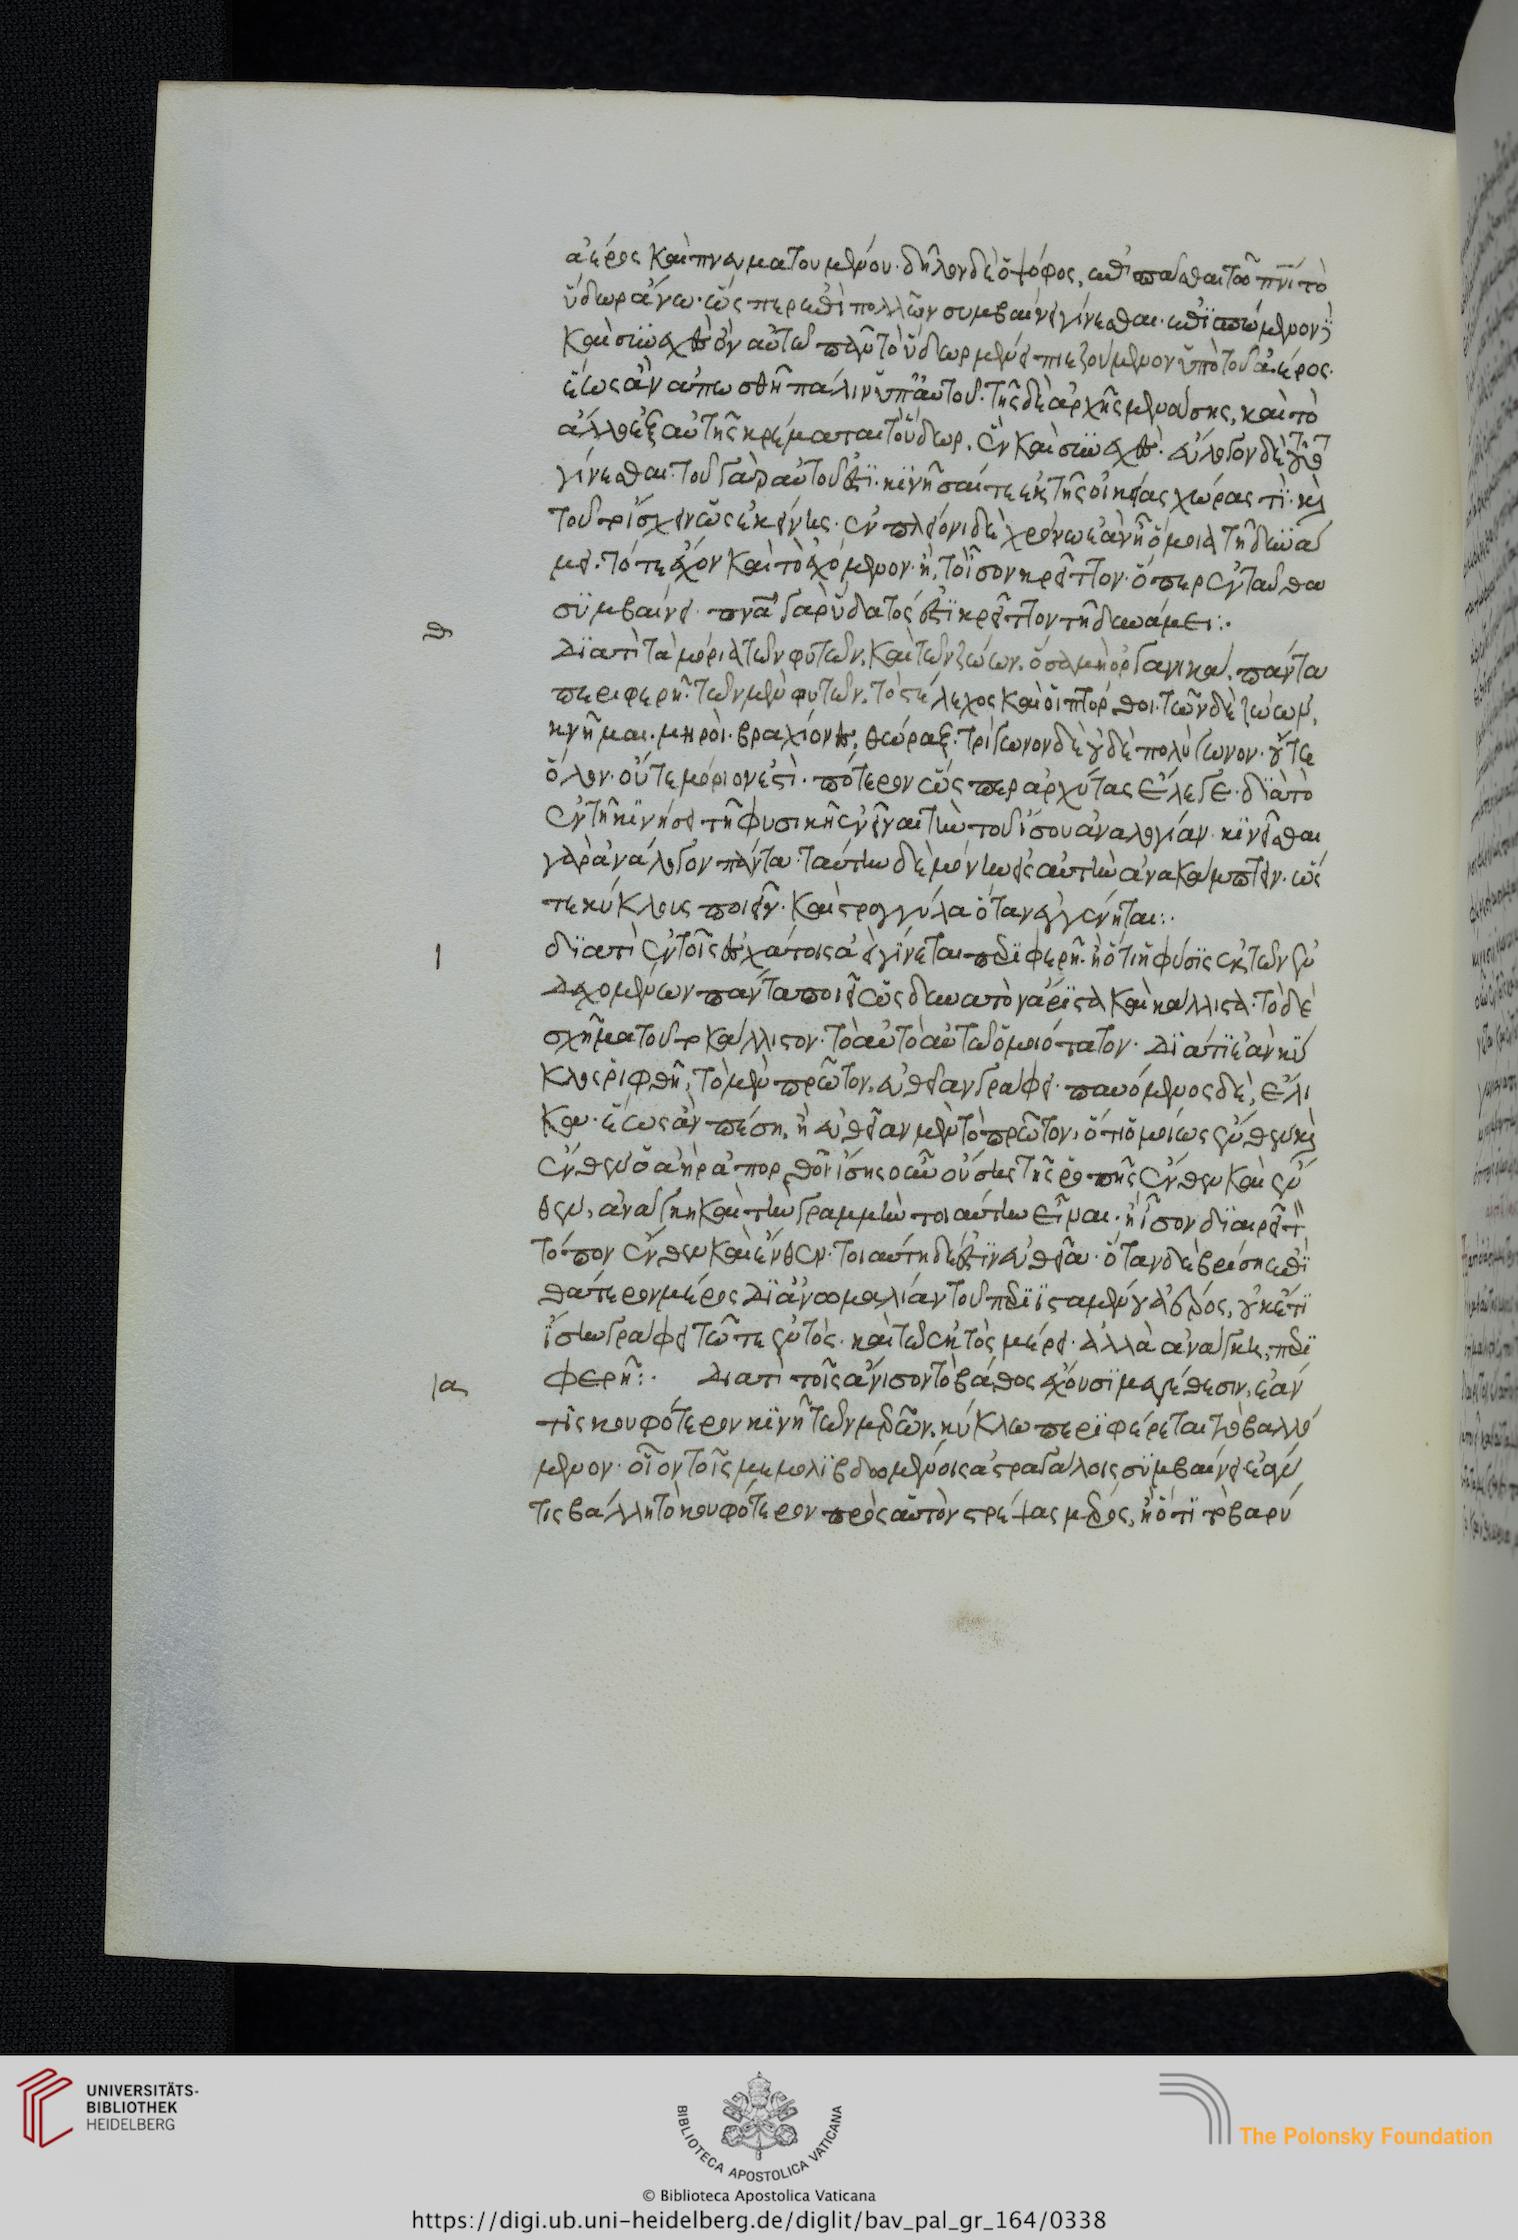 ἀέρος καὶ πνευματουμένου. δηλον δὲ ὁ ψόφος, ἐπισπᾶσθαι τῶ πνι τὸ
ὕδωρ ἄνω. ὥσπερ ἐπὶ πολλῶν συμβαίνει γίνεσθαι. ἐπισπώμενον
καὶ συνεχὲς ὂν αὐτῶ πᾶν τὸ ὕδωρ μένει πιεζούμενον ὑπὸ τοῦ ἀέρος.
ἕως ἂν ἀπωσθῆ πάλιν ὑπ' αὐτοῦ. τῆς δὲ ἀρχῆς μενούσης, καὶ τὸ
ἄλλο ἐξ αὐτῆς κρέμαται τὸ ὕδωρ. ἓν καὶ συνεχὲς. εὔλογον δὲ τοῦτο
γίνεσθαι. τοῦ γὰρ αὐτοῦ ἐστι. κινῆσαί τε ἐκ τῆς οἰκείας χώρας τι. καὶ
τοῦτο ἴσχειν ὡς ἐκείνης. ἐν πλείονι δὲ χρόνω ἐὰν ῆ ὅμοια τῆ δυνά
μει. τό τε ἔχον καὶ τὸ ἐχόμενον. ἢ, τὸ ἴσον κρεῖττον. ὅπερ ἐνταῦθα
συμβαίνει. πνα γὰρ ὕδατός ἐστι κρεῖττον τῆ δυνάμει:.
θ
Διατὶ τὰ μόρια τῶν φυτῶν. καὶ τῶν ζώων. ὅσα μὴ ὀργανικὰ. πάντα
περιφερῆ. τῶν μὲν φυτῶν. τὸ στέλεχος καὶ οἱ πτόρθοι. τῶν δὲ ζώων,
κνῆμαι. μηροὶ. βραχίονες, θώραξ. τρίγωνον δὲ οὐδὲ πολύγωνον. οὔτε
ὅλον. οὔτε μόριον ἐστὶ. πότερον ὥσπερ ἀρχύτας ἔλεγε. διὰ τὸ
ἐν τῆ κινήσει τῆ φυσικῆ ἐνεῖναι τὴν τοῦ ἴσου ἀναλογίαν. κινεῖσθαι
γὰρ ἀνάλογον πάντα. ταύτην δὲ μόνην εἰς αὑτὴν ἀνακάμπτειν. ὥσ
τε κύκλους ποιεῖν. καὶ στρογγύλα ὅταν ἐγγένηται:.
ι
διατὶ ἐν τοῖς ἐσχάτοις ἀεὶ γίνεται περιφερῆ. ἢ ὅτι ἡ φύσις ἐκ τῶν ἐν
δεχομένων πάντα ποιεῖ ὡς δυνατὸν ἄριστα καὶ κάλλιστα. τὸ δὲ
σχῆμα τοῦτο κάλλιστον. τὸ αὐτὸ αὑτῶ ὁμοιότατον. Διατι ἐὰν κύ
κλος ῥιφθῆ, τὸ μὲν πρῶτον, εὐθεῖαν γράφει. παυόμενος δὲ, ἕλι
κα. ἕως ἂν πέση, ἢ εὐθεῖαν μὲν τὸ πρῶτον. ὅτι ὁμοίως ἔνθεν καὶ
ἔνθεν ὁ ἀὴρ ἀπορθοῖ ἴσης οὖν οὔσης τῆς ῥοπῆς ἔνθεν καὶ ἔν
θεν, ἀνάγκη καὶ τὴν γραμμὴν τοιαύτην εἶναι. ἢ ἴσον διαιρεῖ τὸν
τόπον ἔνθεν καὶ ἔνθεν. τοιαύτη δέ ἐστιν εὐθεῖα. ὅταν δὲ βρίση ἐπὶ
θάτερον μέρος δι' ἀνωμαλίαν τοῦ περιισταμένου ἀέρος, οὐκέτι
ἴσην γράφει τῶ τε ἐντὸς. καὶ τῶ ἐκτὸς μέρει. ἀλλὰ ἀνάγκη, περι
ια
φερῆ:. Διατὶ τοῖς ἄνισον τὸ βάθος ἔχουσι μεγέθεσιν, ἐάν
τις κουφότερον κινῆ τῶν μερῶν, κύκλω περιφέρεται τὸ βαλλό
μενον. οἷον τοῖς μεμολιβδωμένοις ἀστραγάλοις συμβαίνει ἐάν
τις βάλλη τὸ κουφότερον πρὸς αὑτὸν στρέψας μέρος, ἢ ὅτι τὸ βαρύ
UNIVERSITÄTS-
BIBLIOTHEK
HEIDELBERG
BIBLIOTECA APOSTOLICA VATICANA
The Polonsky Foundation
© Biblioteca Apostolica Vaticana
https://digi.ub.uni-heidelberg.de/diglit/bav_pal_gr_164/0338